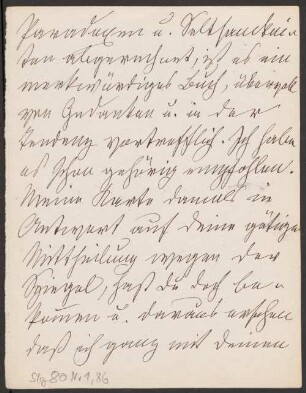 Paradoxen u. Seltsamkei-
ten abgerechnet, ist es ein
merkwürdiges Buch, übervoll
von Gedanken u. in der
Tendenz vortrefflich. Ich habe
es schon gehörig empfohlen.
Meine Karte damals in
Antwort auf deine gütige
Mittheilung wegen der
Spiegel, hast Du doch be-
kommen u. daraus ersehen
daß ich ganz mit deinen
Slg 80 Nr 1, 86